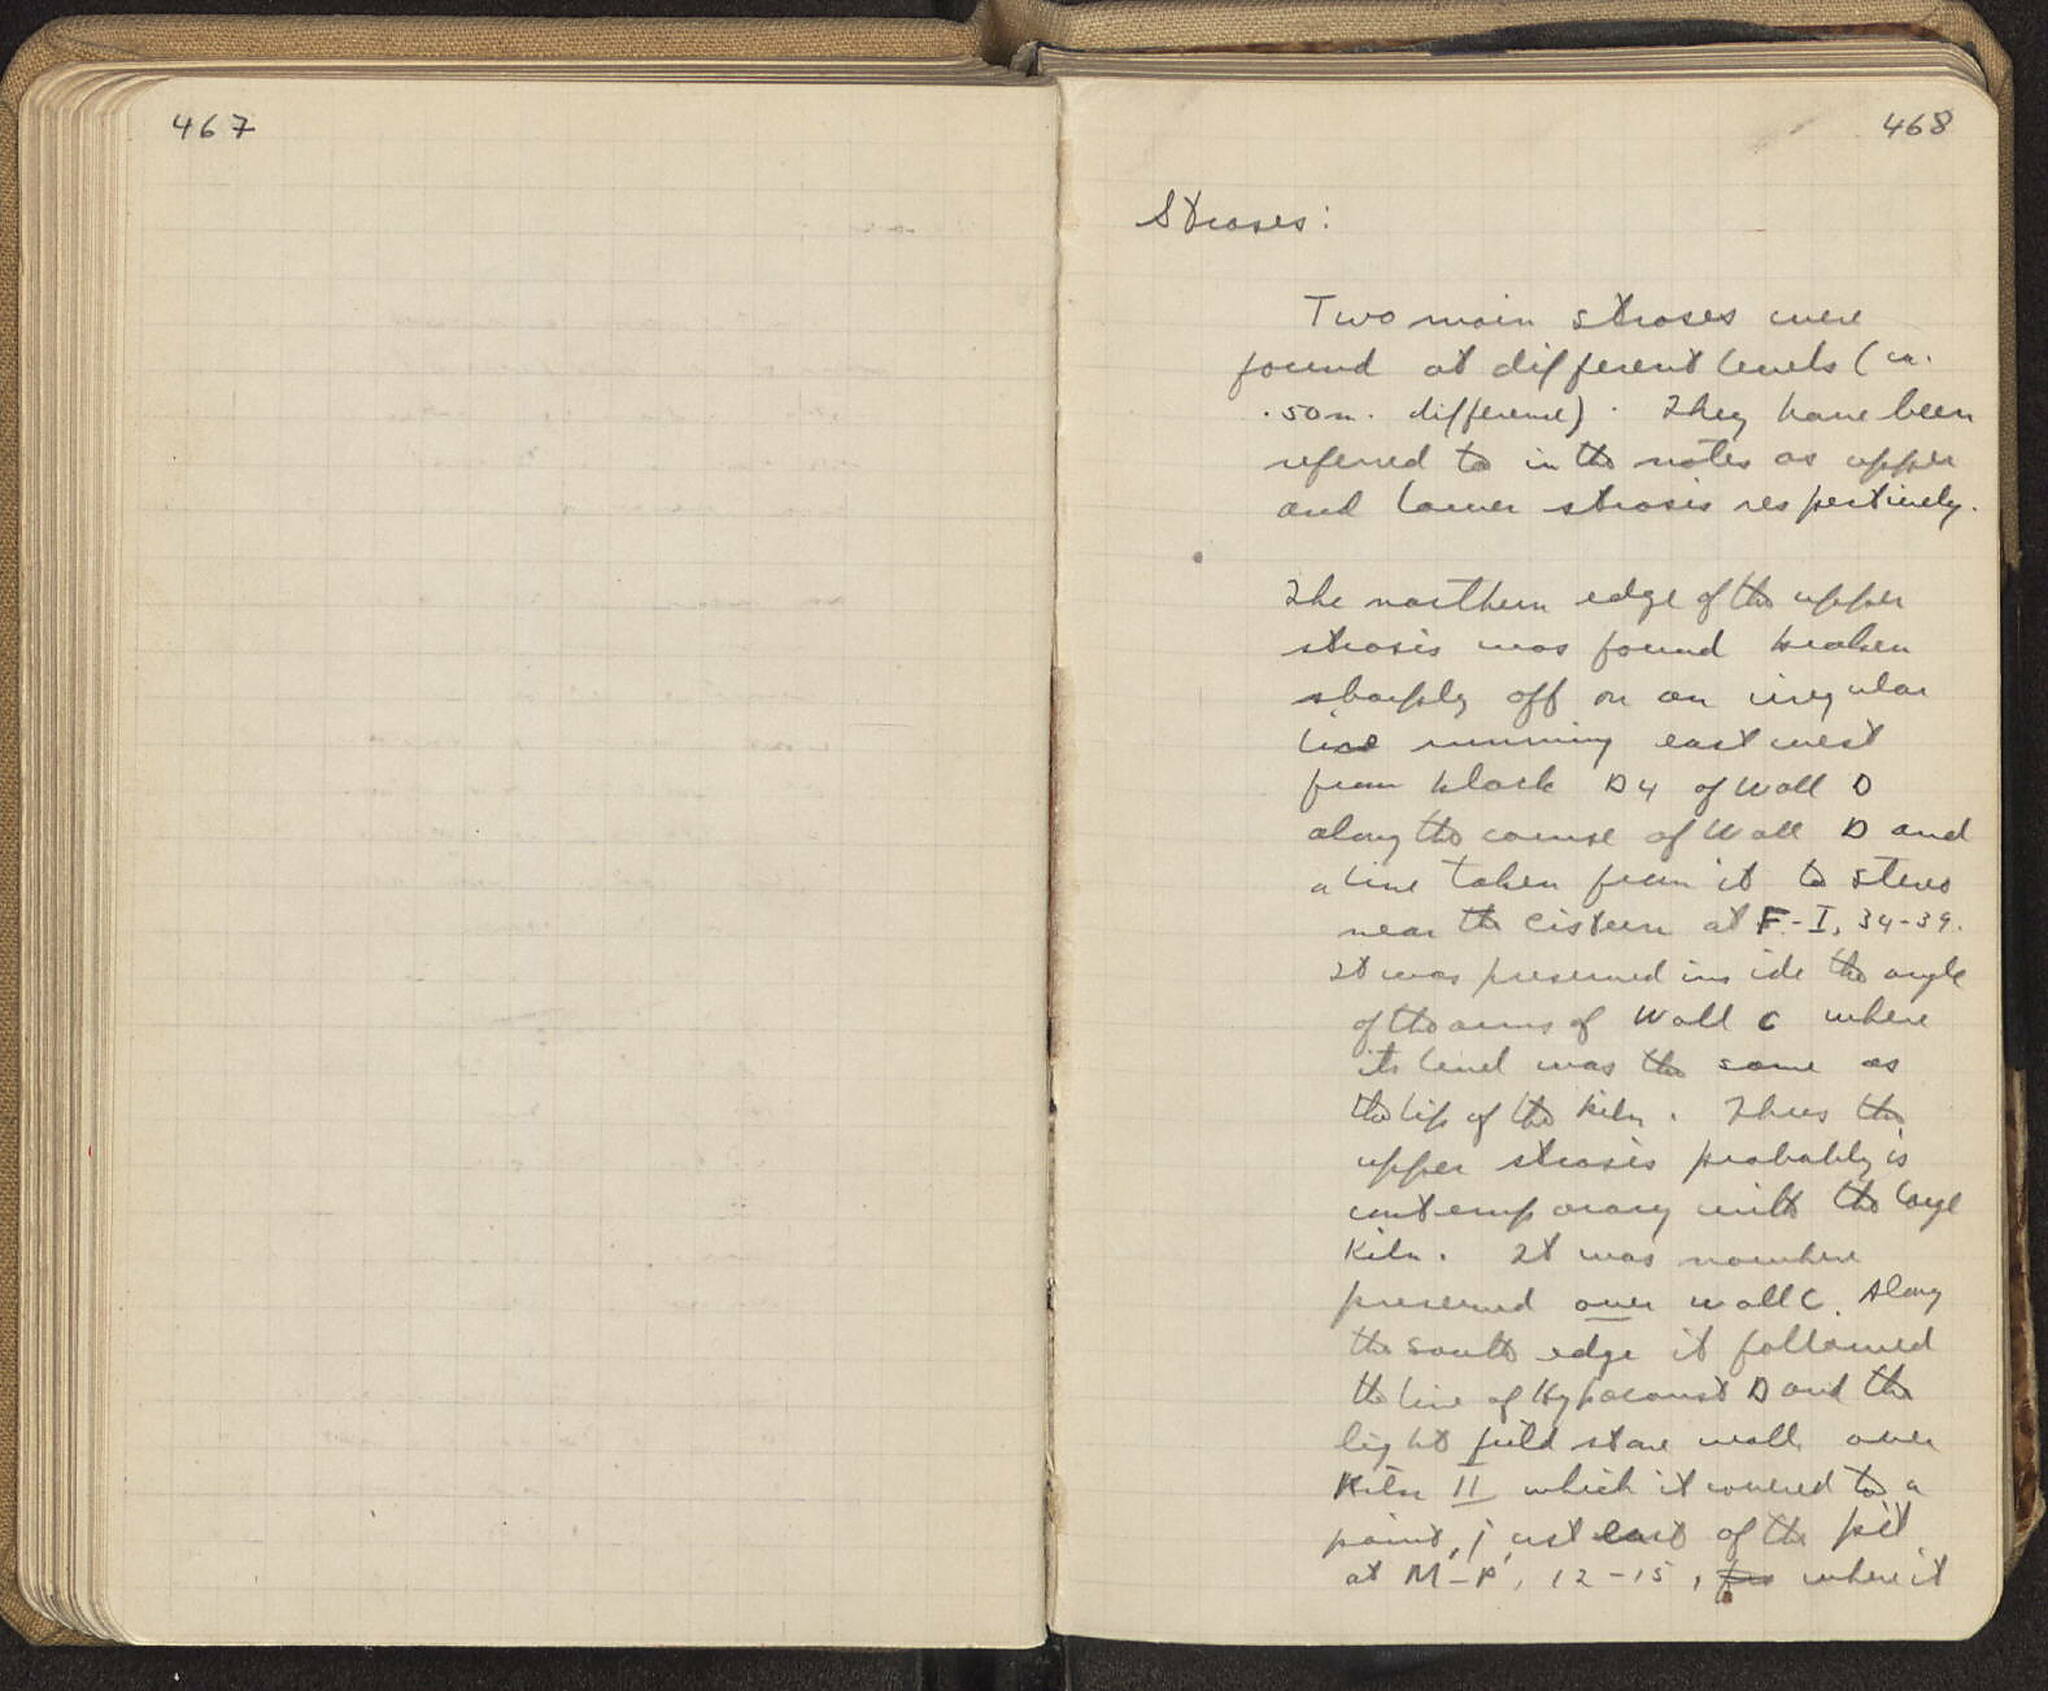 467
468
Stroses:
Two main stroses were
found at different levels (ca.
.50m. difference). They have been
referred to in the notes as upper
and lower strosis respectively.
The northern edge of the upper
strosis was found broken
sharply off on an irregular
line running east west
from block D4 of Wall D
along the course of Wall D and
a line taken from it to
near the cistern at F-I, 34-39.
It was preserved inside the angle
of the arms of Wall C where
its level was the same as
the lip of the kiln. Thus the
upper strosis probably is
contemporary with the large
Kiln. It was nowhere
preserved over wall C. Along
the south edge it followed
the line of Hypocaust D and the
light field stone wall over
Kiln II which it covered to a
point, just east of the pit
at M-P, 12-15, where it